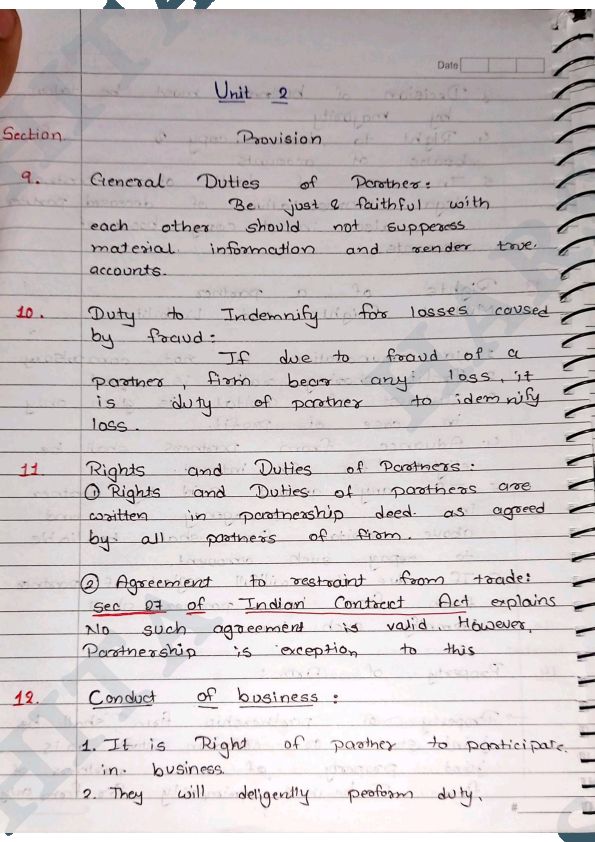 Date
Unit - 2
Section Provision
9. General Duties of Partner:
Be just & faithful with
each other should not suppress
material information and render true
accounts.
10. Duty to Indemnify for losses caused
by fraud:
If due to fraud of a
partner, firm bear any loss, it
is duty of partner to idemnify
loss.
11 Rights and Duties of Partners:
① Rights and Duties of partners are
written in partnership deed as agreed
by all partners of firm.
② Agreement to restraint from trade:
Sec 27 of Indian Contract Act explains
No such agreement is valid. However,
Partnership is exception to this
12. Conduct of business:
1. It is Right of partner to participate
in business
2. They will deligently perform duty.